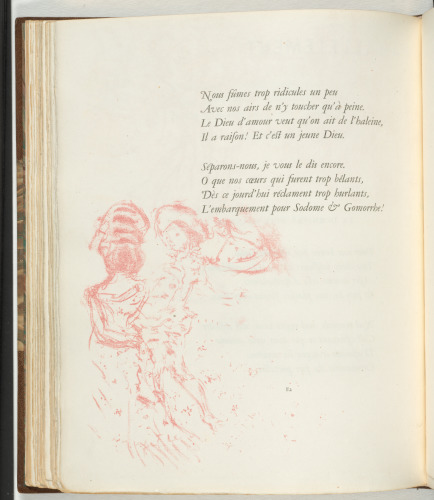 Nous fûmes trop ridicules un peu
Avec nos airs de n'y toucher qu'à peine.
Le Dieu d'amour veut qu'on ait de l'haleine,
Il a raiſon! Et c'eſt un jeune Dieu.
Séparons-nous, je vous le dis encore.
O que nos cœurs qui furent trop bêlants,
Dès ce jourd'hui réclament trop hurlants,
L'embarquement pour Sodome & Gomorrhe!